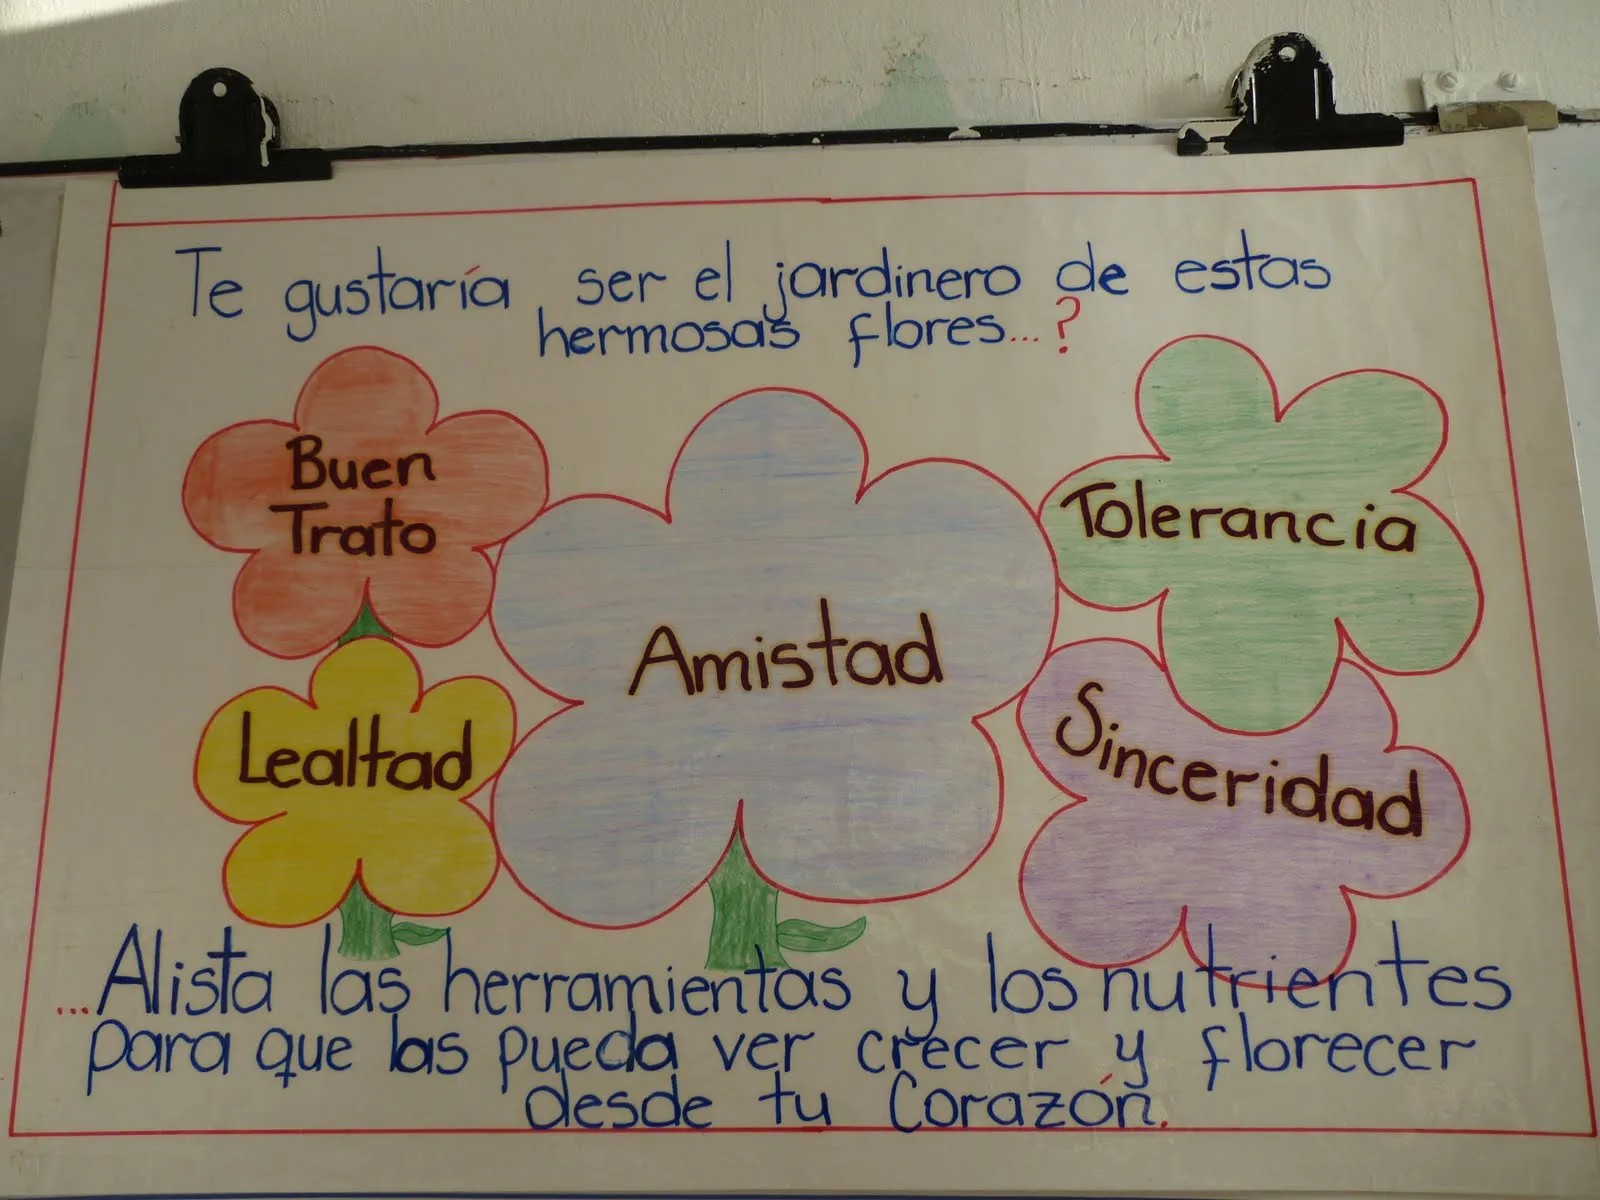 Te gustaría ser el jardinero de estas
hermosas flores...?
Buen
Trato
Amistad
Tolerancia
Lealtad
Sinceridad
...Alista las herramientas y los nutrientes
para que las pueda ver crecer y florecer
desde tu Corazón.